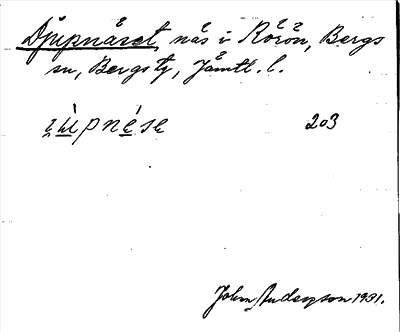 Djupnäset, näs i Rörön, Bergs
sn, Bergs tg, Jämtl. l.
203
John Anderzson 1931.